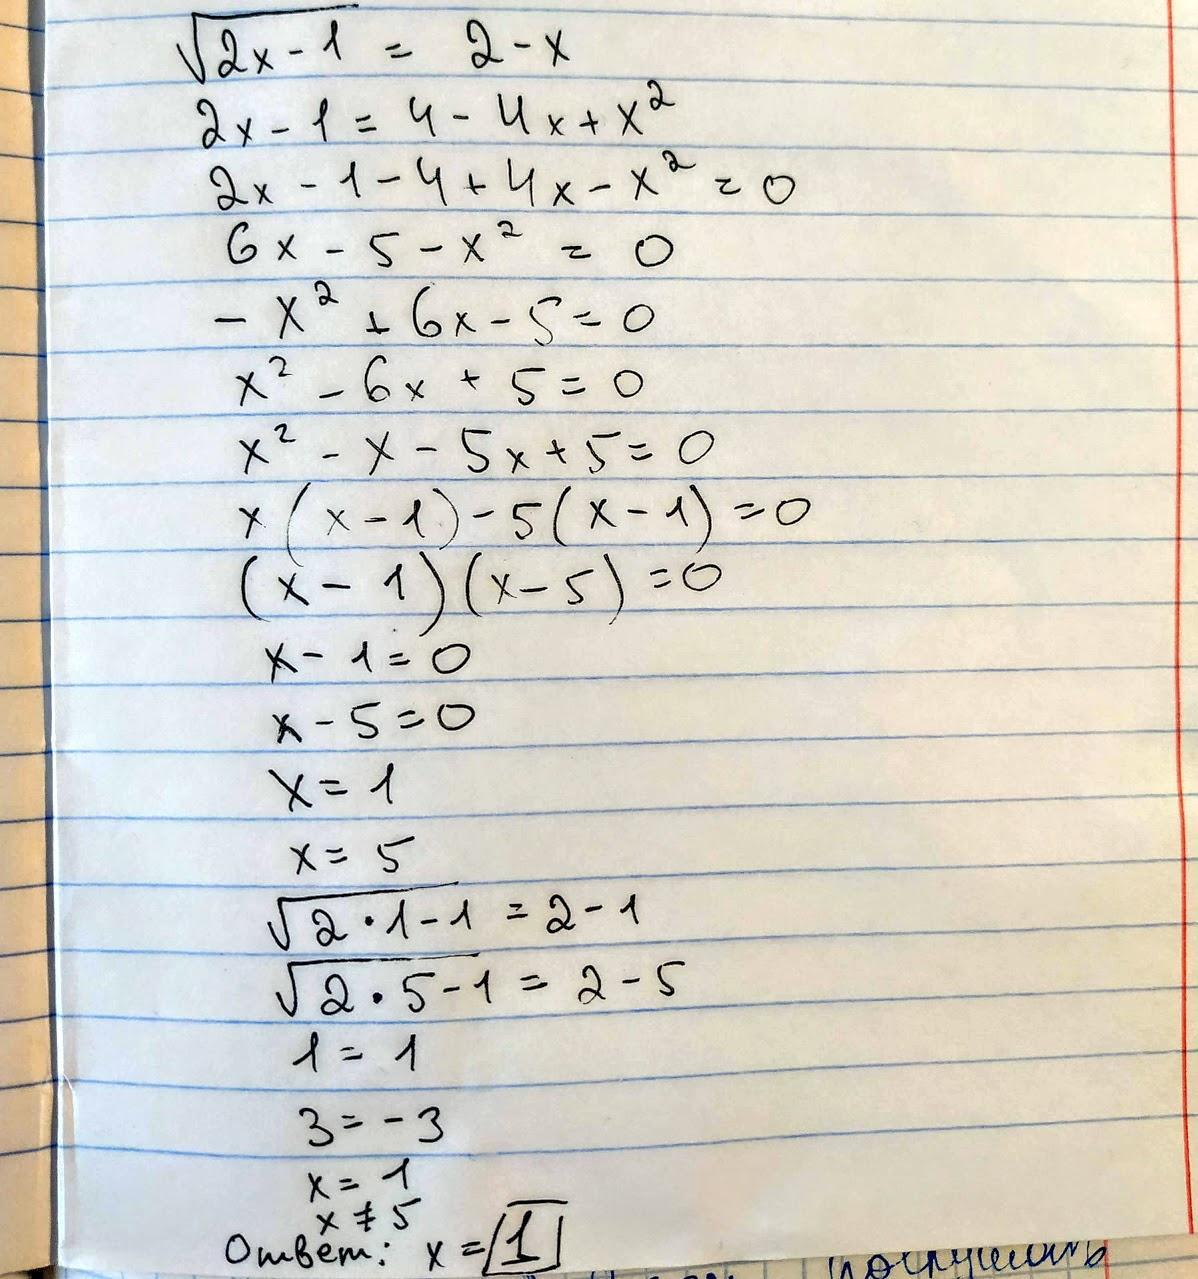 √2x - 1 = 2 - x
2x - 1 = 4 - 4x + x²
2x - 1 - 4 + 4x - x² = 0
6x - 5 - x² = 0
- x² + 6x - 5 = 0
x² - 6x + 5 = 0
x² - x - 5x + 5 = 0
x (x - 1) - 5 (x - 1) = 0
(x - 1) (x - 5) = 0
x - 1 = 0
x - 5 = 0
x = 1
x = 5
√2 · 1 - 1 = 2 - 1
√2 · 5 - 1 = 2 - 5
1 = 1
3 = - 3
x = 1
x ≠ 5
Ответ: x = 1